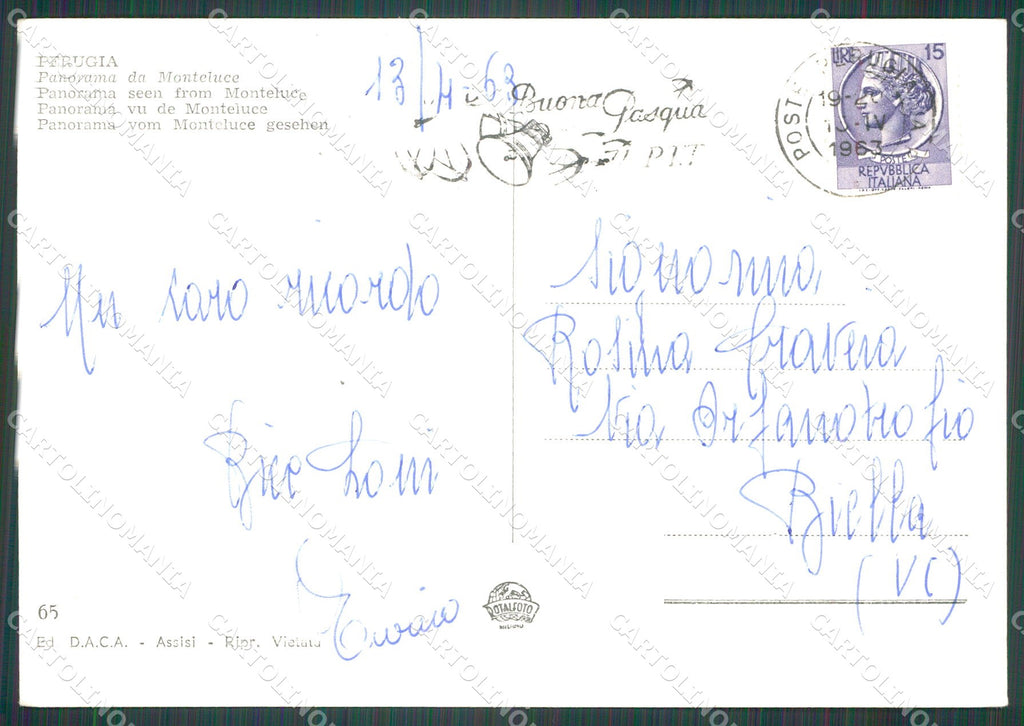 PERUGIA
Panorama da Monteluce
Panorama seen from Monteluce
Panorama vu de Monteluce
Panorama vom Monteluce gesehen
13/4-63
Buona Pasqua
P.TT
POSTE
19-2
IV
1963
LIRE 15
POSTE
REPVBBLICA
ITALIANA
Un caro ricordo
Bice Loni
Signorina
Rosina Cravera
Via Orfanotrofio
Biella
(VC)
65
Ed D.A.C.A. - Assisi - Ripr. Vietata
TOTALFOTO
MILANO
CARTOLINOMANIA